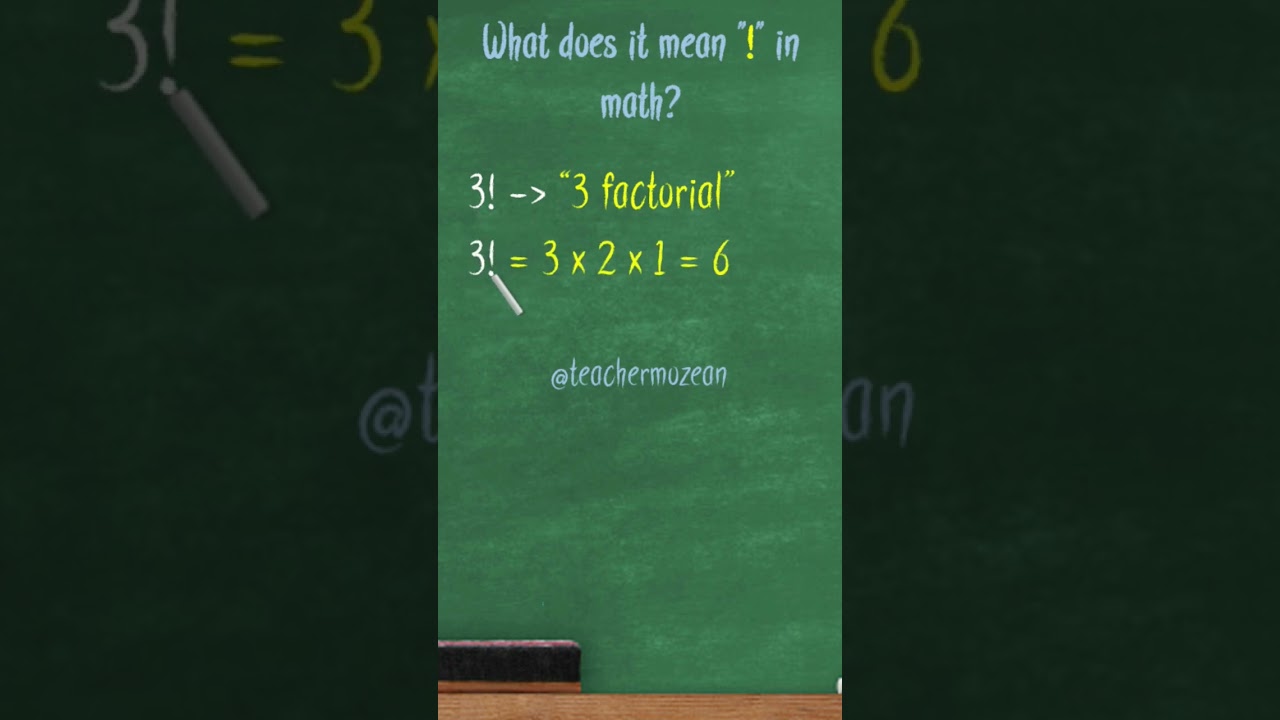 What does it mean "!" in
math?
3! -> “3 factorial”
3! = 3 x 2 x 1 = 6
@teachermozean